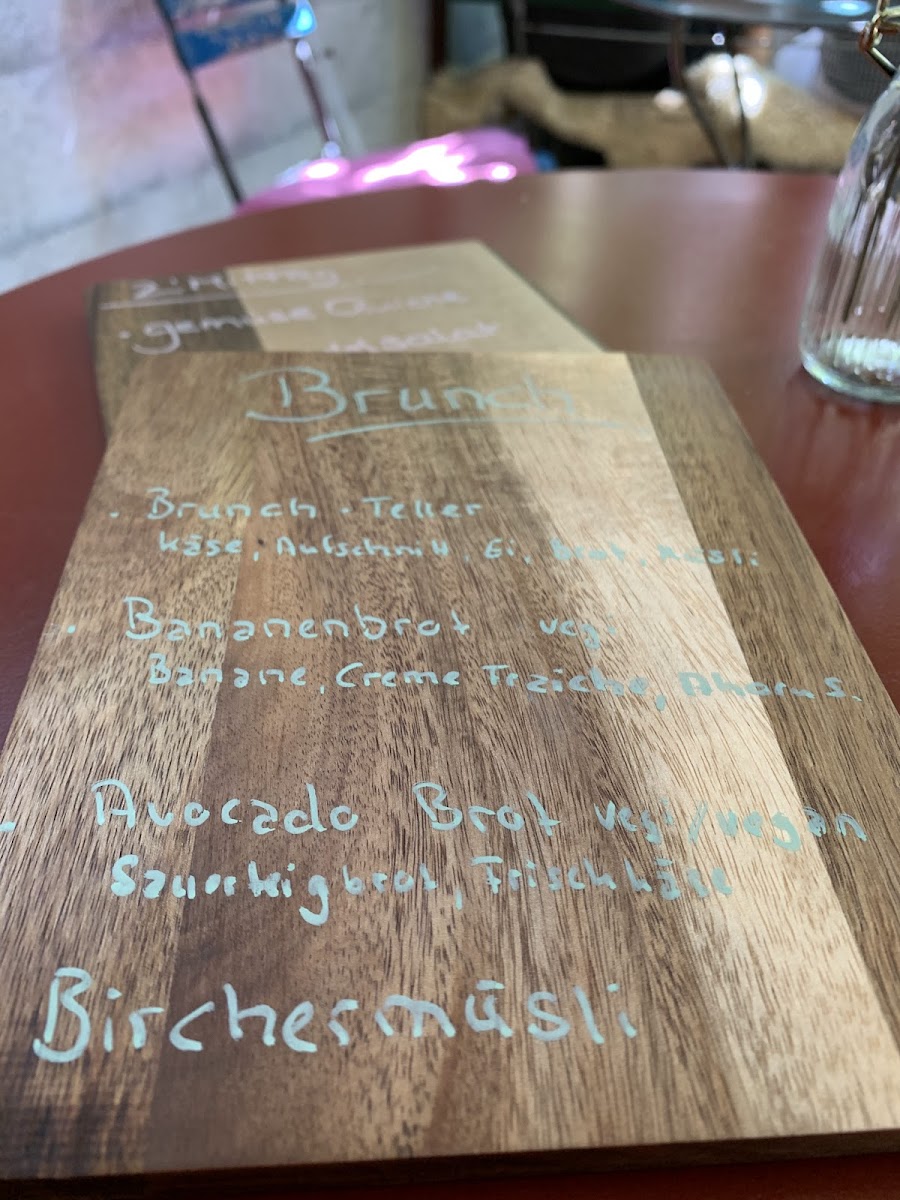 z'Mittag
· gemüse Quiche
salat
Brunch
· Brunch - Teller
Käse, Aufschnitt, Ei, Brot, Müsli
· Bananenbrot vegi
Banane, Creme Fraiche, Ahorn S.
- Avocado Brot vegi/vegan
Sauerteigbrot, Frischkäse
Birchermüsli